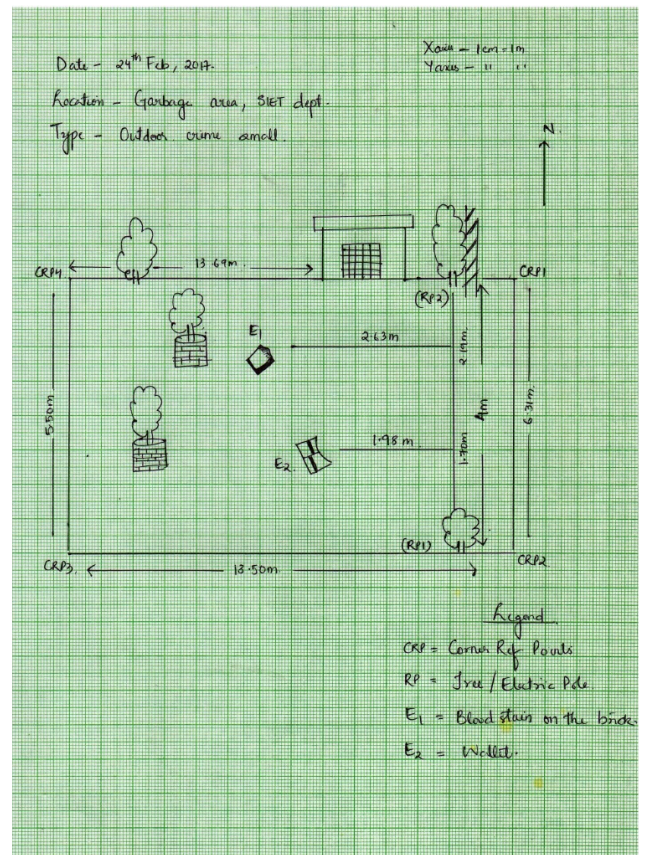 Xaxis - 1cm = 1m
Yaxis - " "
Date - 24th Feb, 2017.
Location - Garbage area, SIET dept.
Type - Outdoor crime small.
N.
CRP4
13.69m.
CRP1
(RP2)
E1
2.63m
2.19m
5.50m
4m
6.31m.
1.98 m
1.70m
E2
(RP1)
CRP3.
13.50m.
CRP2
Legend
CRP = Corner Ref Points
RP = Tree / Electric Pole.
E1 = Blood stain on the brick.
E2 = Wallet.